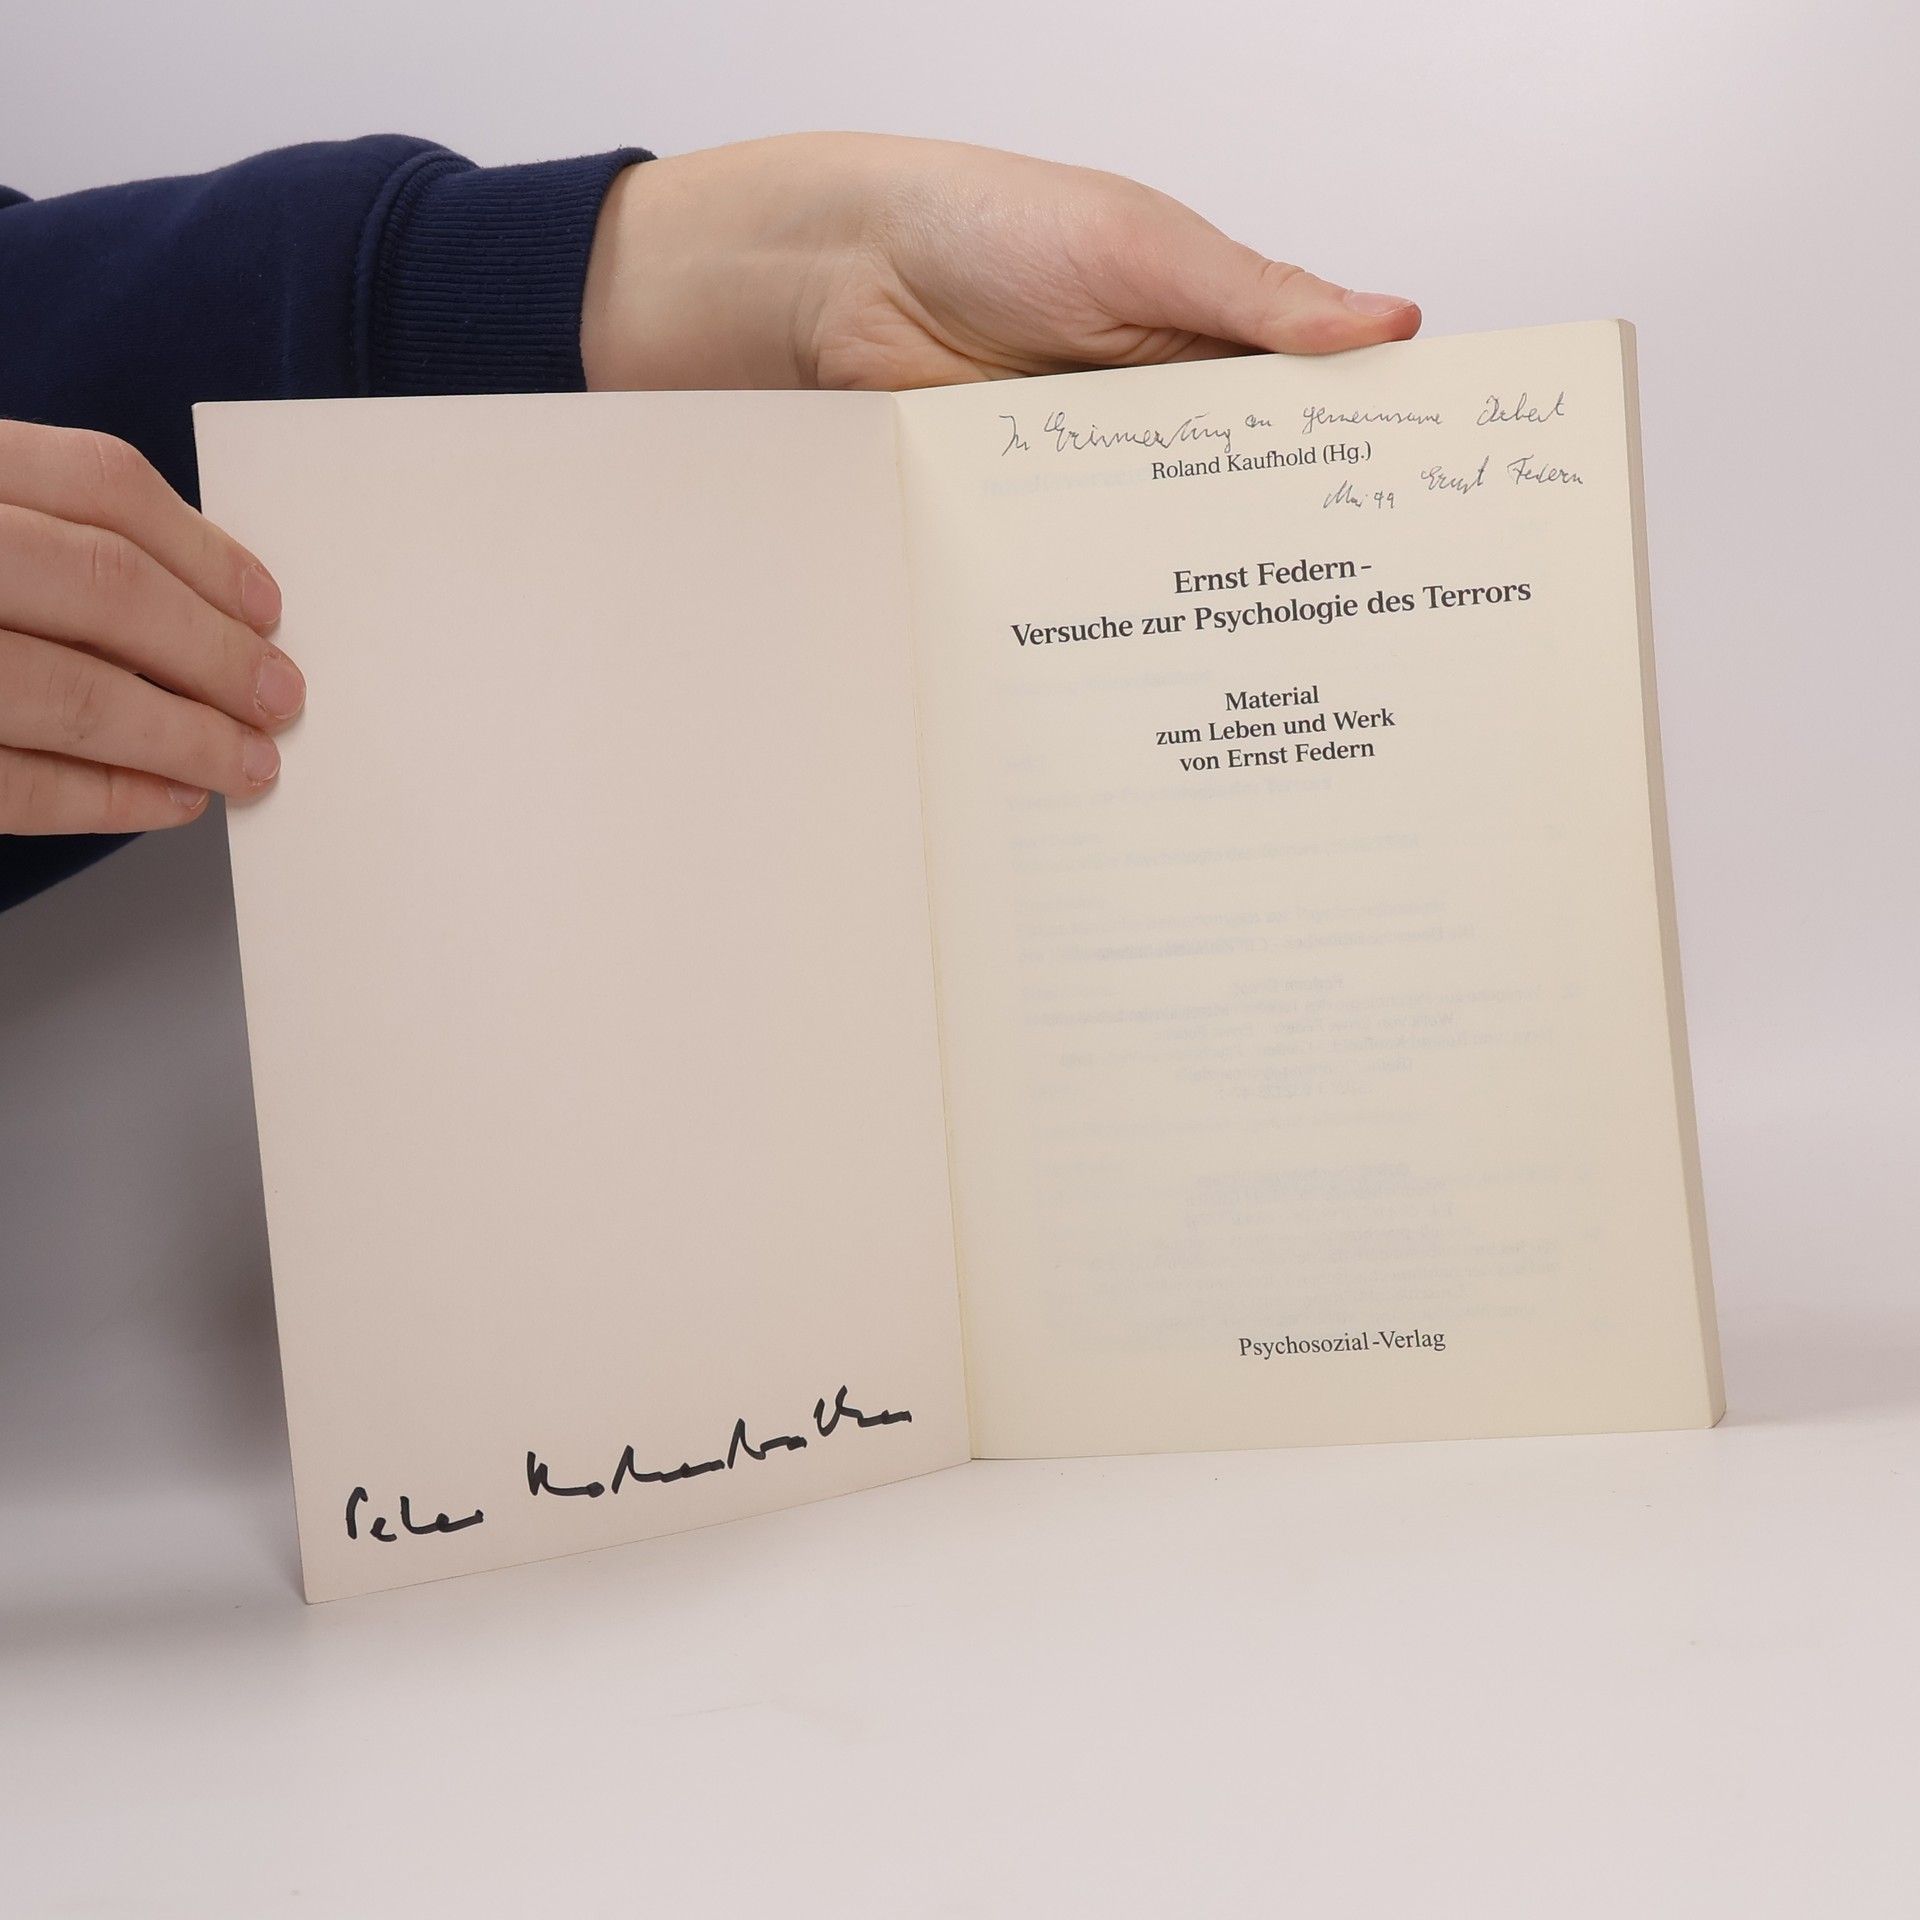 In Erinnerung an gemeinsame Arbeit
Roland Kaufhold (Hg.)
Mai 99 Ernst Federn
Ernst Federn –
Versuche zur Psychologie des Terrors
Material
zum Leben und Werk
von Ernst Federn
Psychosozial-Verlag
Peter